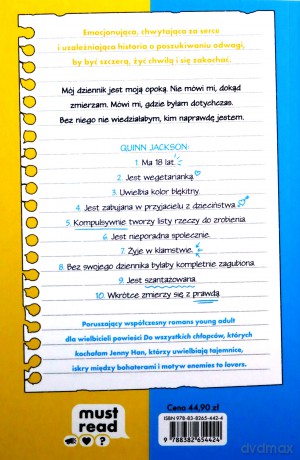 Emocjonująca, chwytająca za serce
i uzależniająca historia o poszukiwaniu odwagi,
by być szczerą, żyć chwilą i się zakochać.
Mój dziennik jest moją opoką. Nie mówi mi, dokąd
zmierzam. Mówi mi, gdzie byłam dotychczas.
Bez niego nie wiedziałabym, kim naprawdę jestem.
QUINN JACKSON:
1. Ma 18 lat.
2. Jest wegetarianką.
3. Uwielbia kolor błękitny.
4. Jest zabujana w przyjacielu z dzieciństwa.
5. Kompulsywnie tworzy listy rzeczy do zrobienia.
6. Jest nieporadna społecznie.
7. Żyje w kłamstwie.
8. Bez swojego dziennika byłaby kompletnie zagubiona.
9. Jest szantażowana.
10. Wkrótce zmierzy się z prawdą.
Poruszający współczesny romans young adult
dla wielbicieli powieści Do wszystkich chłopców, których
kochałam Jenny Han, którzy uwielbiają tajemnice,
iskry między bohaterami i motyw enemies to lovers.
must
read
?
Cena 44,90 zł
ISBN 978-83-8265-442-4
9 788382 654424
dvdmax